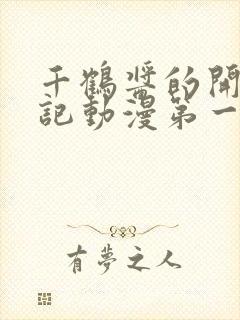 千鶴醬的開
記動漫第一
有夢之人